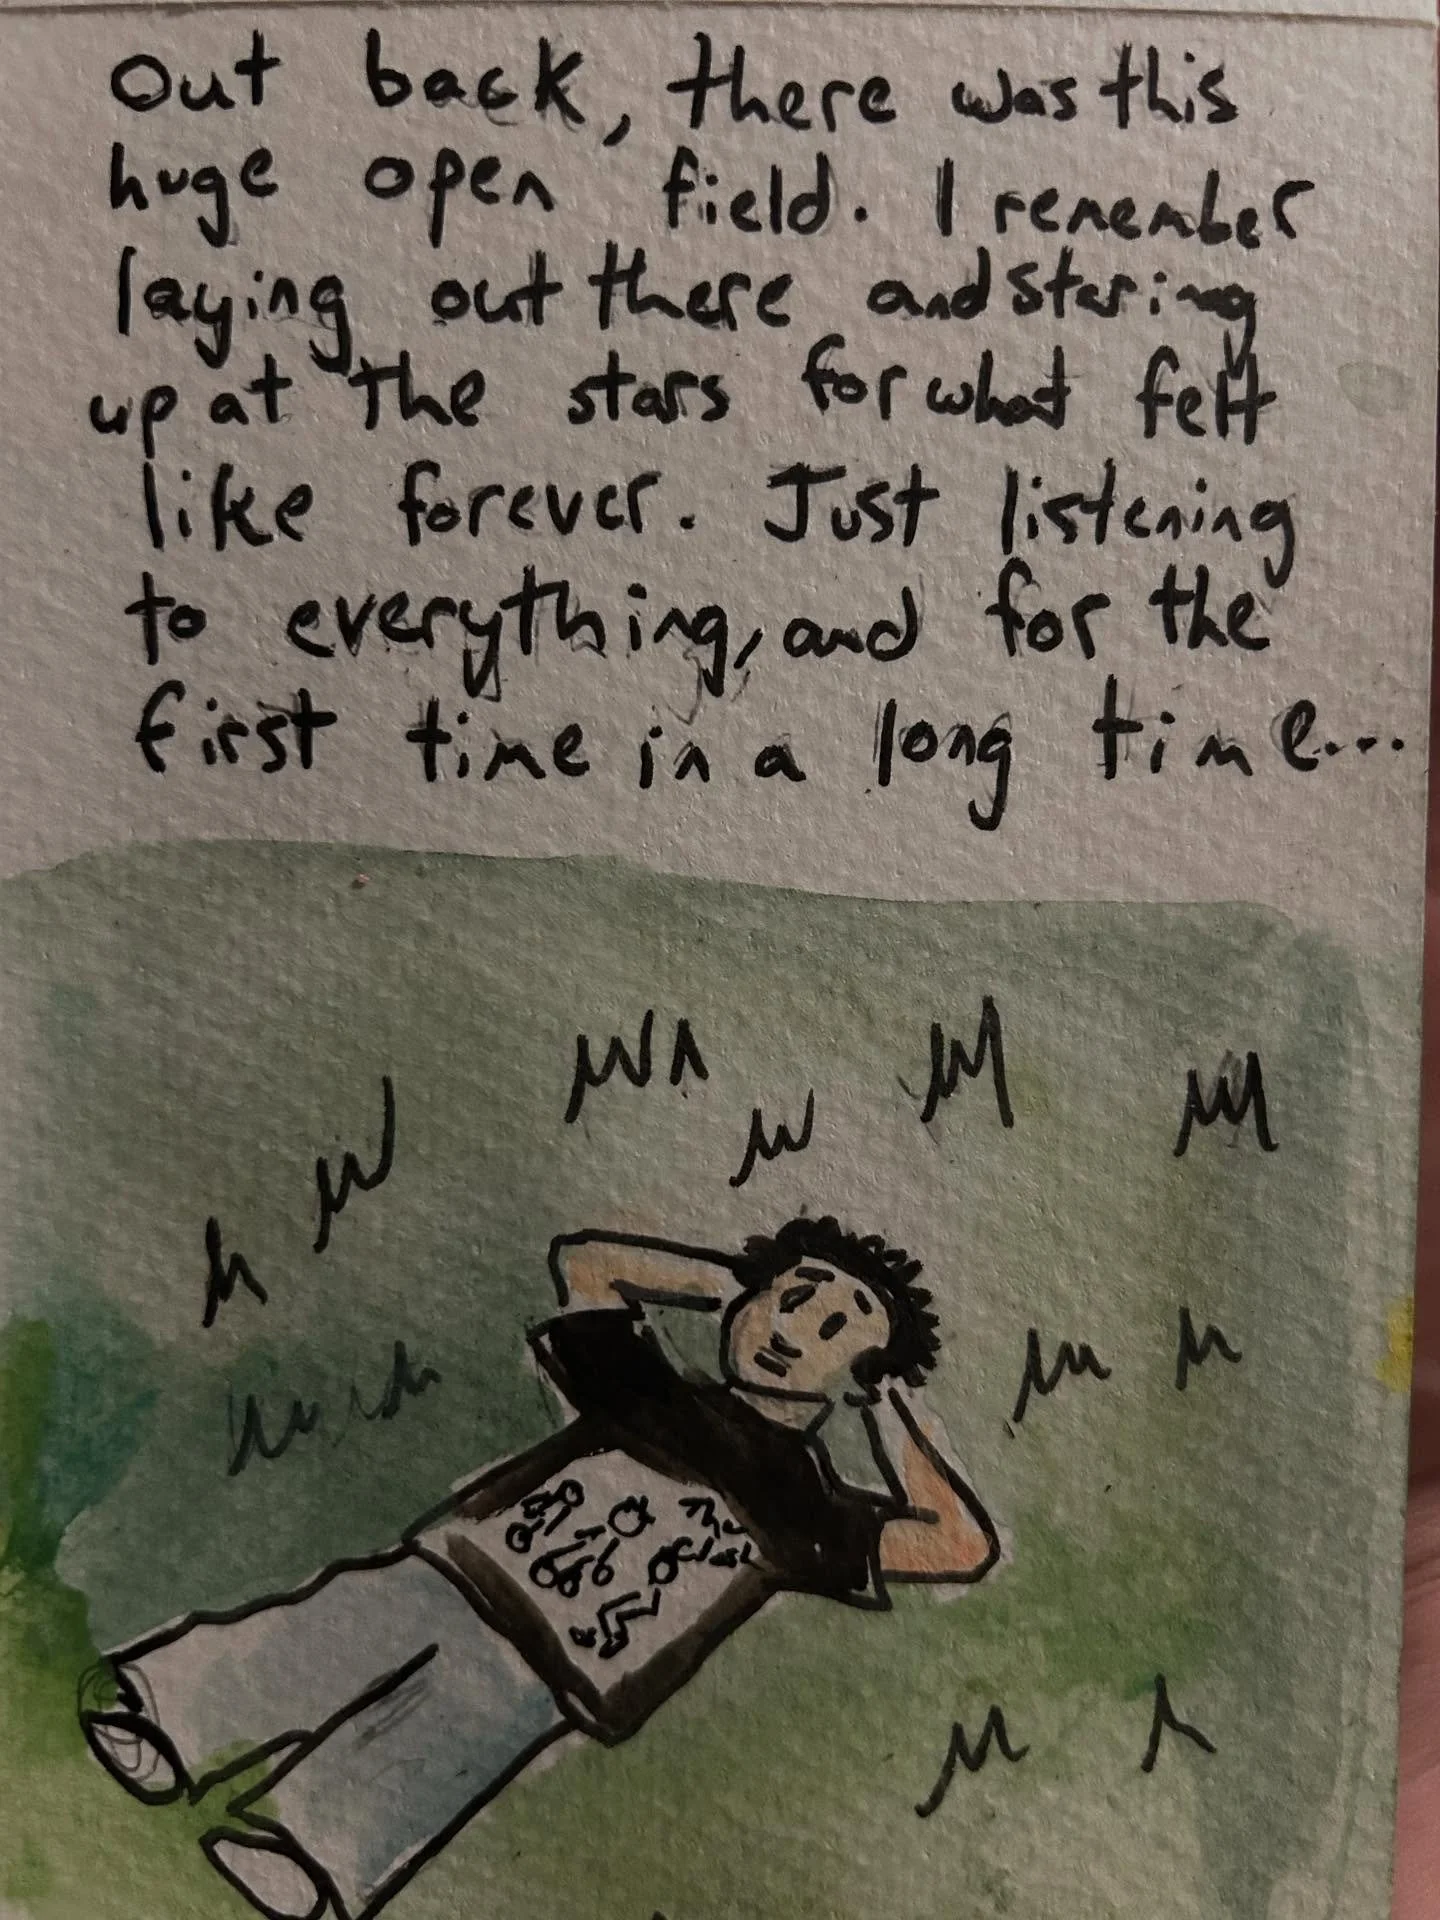 Out back, there was this
huge open field. I remember
laying out there and staring
up at the stars for what felt
like forever. Just listening
to everything, and for the
first time in a long time...
The
Clash